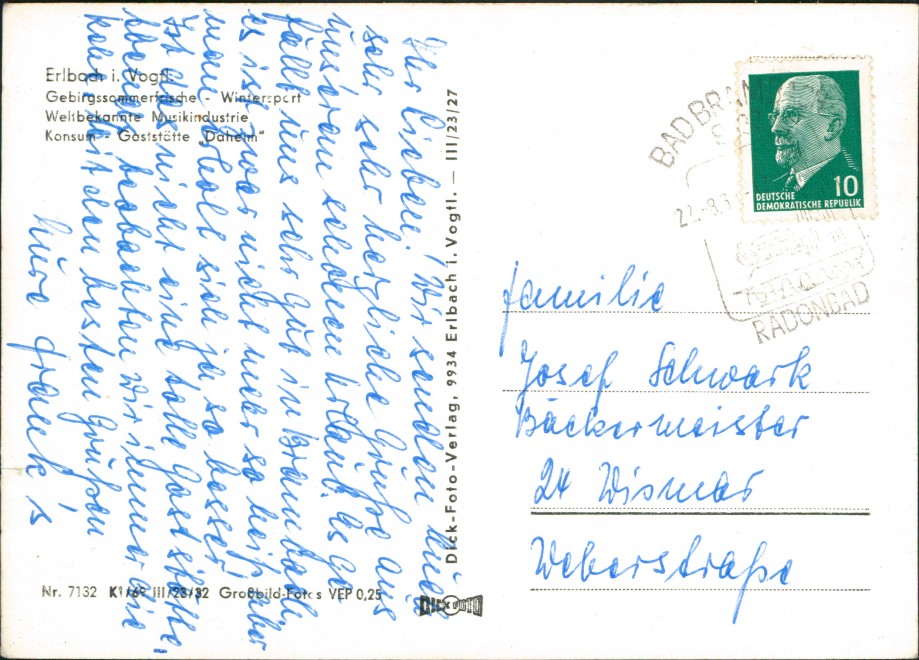 Erlbach i. Vogtl.
Gebirgssommerfrische - Wintersport
Weltbekannte Musikindustrie
Konsum - Gaststätte „Daheim"
Ihr Lieben! Wir senden Euch
sehr sehr herzliche Grüße aus
unserem schönen Urlaub. Es ge-
fällt uns sehr gut in Brambach,
es ist zwar nicht mehr so heiß aber
man erholt sich ja so besser!
Ist das nicht eine tolle Gaststätte,
abends beobachten wir immer die
Mit den besten Grüßen
Eure Frank's
Dick-Foto-Verlag, 9934 Erlbach i. Vogtl. — III/23/27
Nr. 7132 K1/69 III/23/32 Großbild-Fotos VEP 0,25
DICK FOTO
BAD BRAM
22.-8.6
RADONBAD
10
DEUTSCHE
DEMOKRATISCHE REPUBLIK
Familie
Josef Schwark
Bäckermeister
24 Wismar
Weberstraße